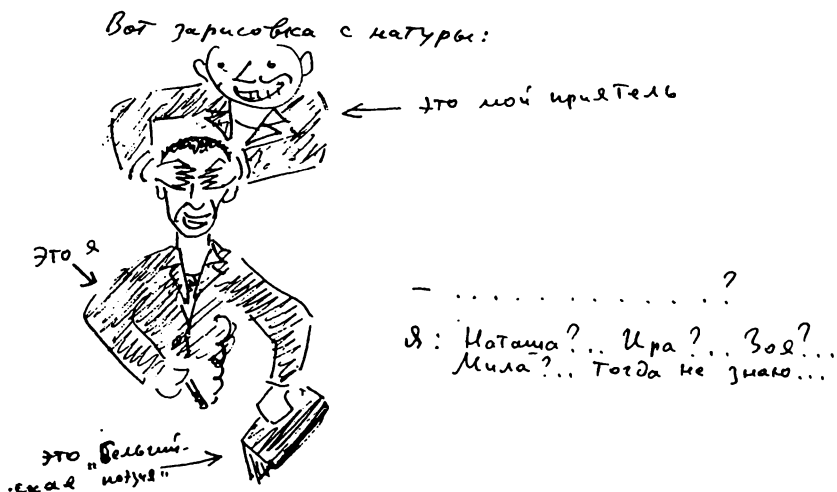 Вот зарисовка с натуры:
это мой приятель
это я
— . . . . . . . . . . . . ?
Я: Наташа?.. Ира?.. Зоя?...
Мила?.. Тогда не знаю...
это „Бельгий-
ская поэзия"